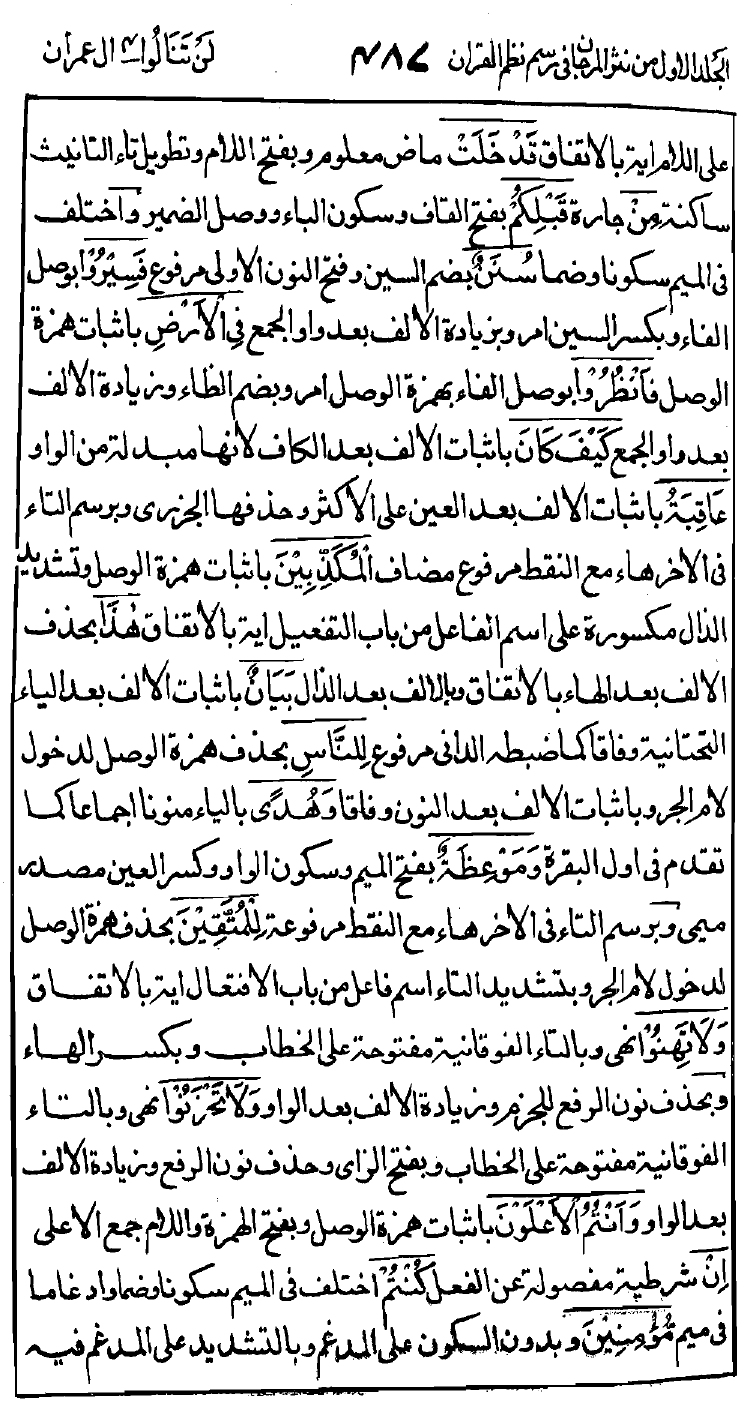 الجلد الاول من نثر المرجان فی رسم نظم القران ۴۸۷ لن تنالوا ۴ ال عمران
علی اللام اية بالاتفاق قَدْ خَلَتْ ماض معلوم وبفتح اللام وتطويل تاء التانيث
ساكنة مِنْ جارة قَبْلِكُمْ بفتح القاف وسكون الباء ووصل الضمير واختلف
فی الميم سكونا وضما سُنَنٌ بضم السين وفتح النون الاولی مرفوع فَسِيْرُوْا بوصل
الفاء وبكسر السين امر وبزيادة الالف بعد واو الجمع فِی الْاَرْضِ باثبات همزة
الوصل فَانْظُرُوْا بوصل الفاء بهمزة الوصل امر وبضم الظاء وزيادة الالف
بعد واو الجمع كَيْفَ كَانَ باثبات الالف بعد الكاف لانها مبدلة من الواو
عَاقِبَةُ باثبات الالف بعد العين علی الاكثر وحذفها الجزری وبرسم التاء
فی الاخر هاء مع النقط مرفوع مضاف الْمُكَذِّبِيْنَ باثبات همزة الوصل وتشديد
الذال مكسورة علی اسم الفاعل من باب التفعيل اية بالاتفاق هٰذَا بحذف
الالف بعد الهاء بالاتفاق وبالالف بعد الذال بَيَانٌ باثبات الالف بعد الياء
التحتانية وفاقا كما ضبطه الدانی مرفوع لِلنَّاسِ بحذف همزة الوصل لدخول
لام الجر وباثبات الالف بعد النون وفاقا وَهُدًی بالياء منونا اجماعا كما
تقدم فی اول البقرة وَمَوْعِظَةٌ بفتح الميم وسكون الواو وكسر العين مصدر
ميمی وبرسم التاء فی الاخر هاء مع النقط مرفوعة لِلْمُتَّقِيْنَ بحذف همزة الوصل
لدخول لام الجر وبتشديد التاء اسم فاعل من باب الافتعال اية بالاتفاق
وَلَا تَهِنُوْا نهی وبالتاء الفوقانية مفتوحة علی الخطاب وبكسر الهاء
وبحذف نون الرفع للجزم وزيادة الالف بعد الواو وَلَا تَحْزَنُوْا نهی وبالتاء
الفوقانية مفتوحة علی الخطاب وبفتح الزای وحذف نون الرفع وزيادة الالف
بعد الواو وَاَنْتُمُ الْاَعْلَوْنَ باثبات همزة الوصل وبفتح الهمزة واللام جمع الاعلی
اِنْ شرطية مفصولة عن الفعل كُنْتُمْ اختلف فی الميم سكونا وضما وادغاما
فی ميم مُؤْمِنِيْنَ وبدون السكون علی المدغم وبالتشديد علی المدغم فيه